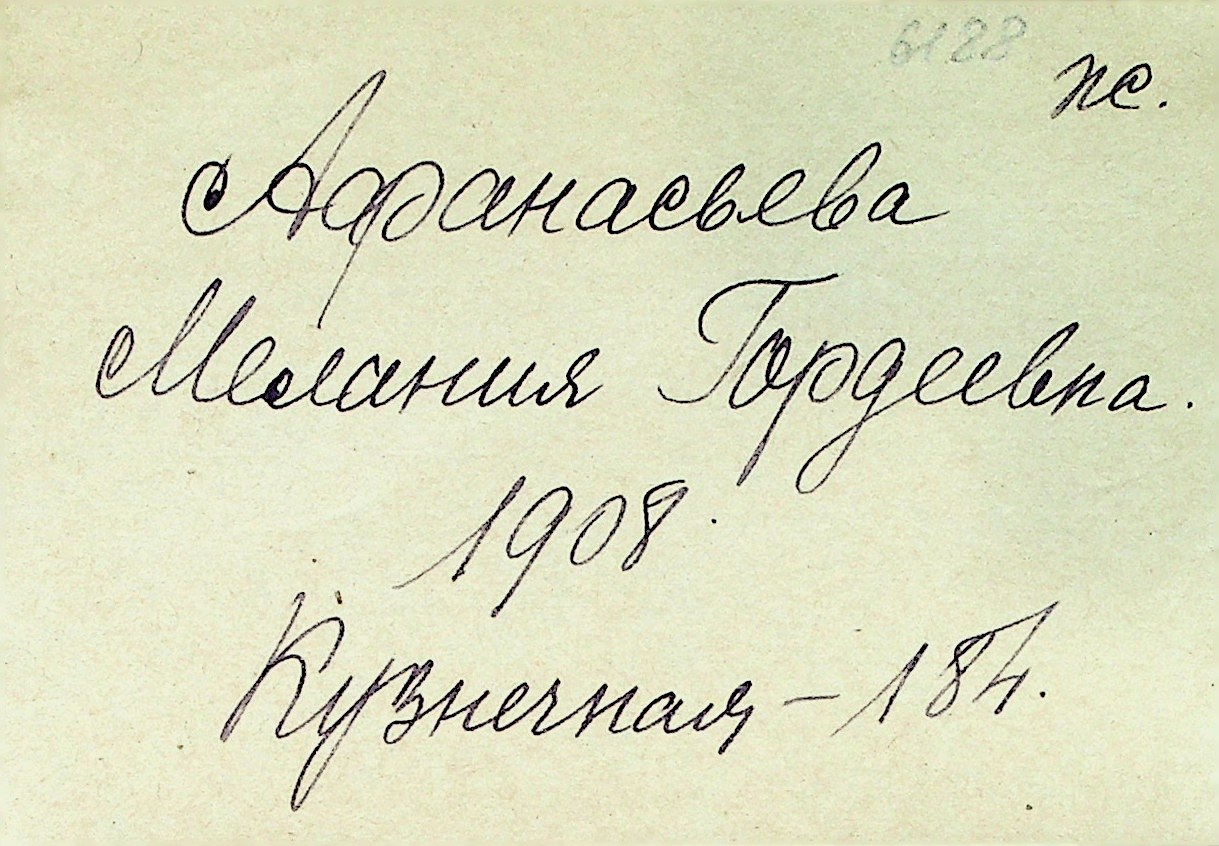 6128
пс.
Афанасьева
Мелания Гордеевна.
1908
Кузнечная - 184.